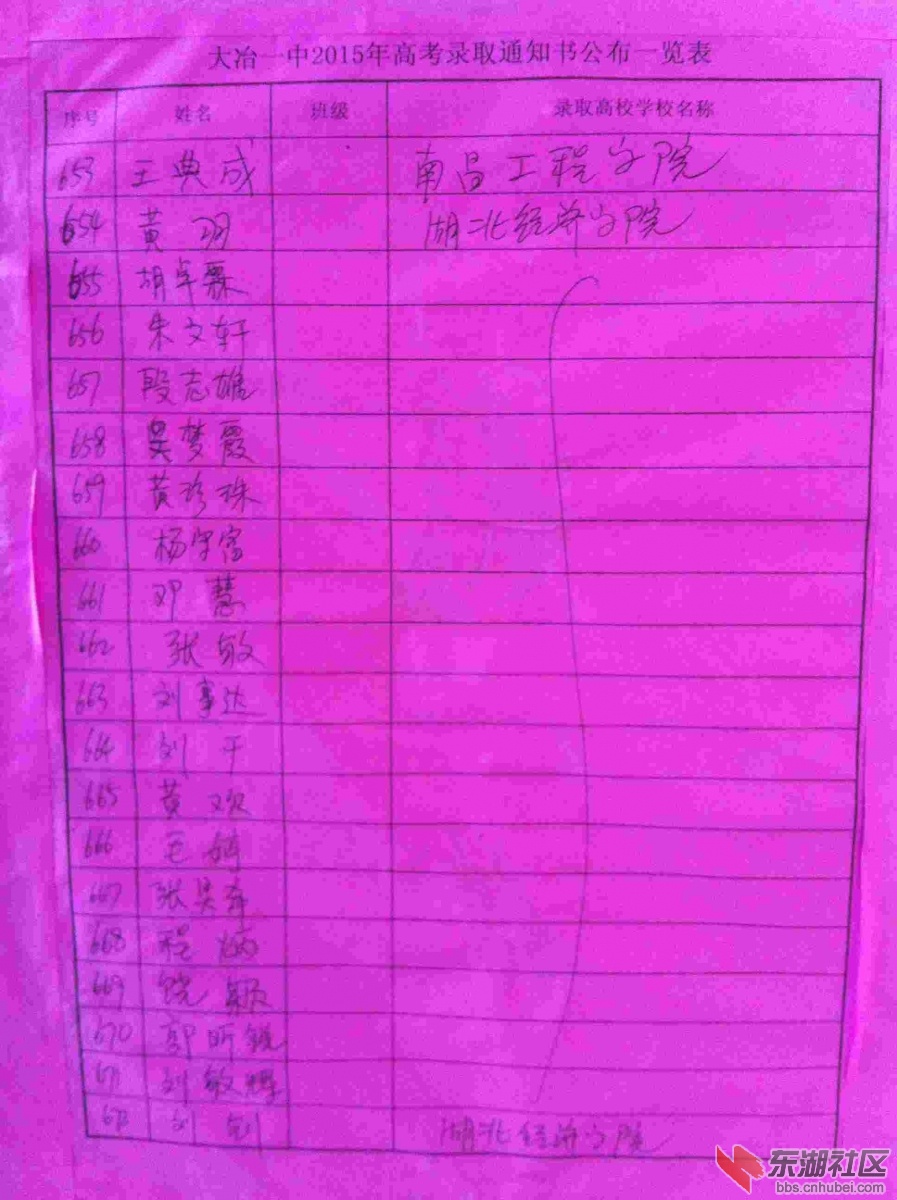 大冶一中2015年高考录取通知书公布一览表
序号 姓名 班级 录取高校学校名称
653 王典成 南昌工程学院
654 黄羽 湖北经济学院
655 胡卓霖
656 朱文轩
657 段志雄
658 吴梦霞
659 黄珍珠
660 杨守富
661 邓慧
662 张敏
663 刘事达
664 刘干
665 黄欢
666 王婷
667 张昊
668 程
669 饶颖
670 郭昕锐
671 刘敏辉
672 刘钊 湖北经济学院
东湖社区
bbs.cnhubei.com